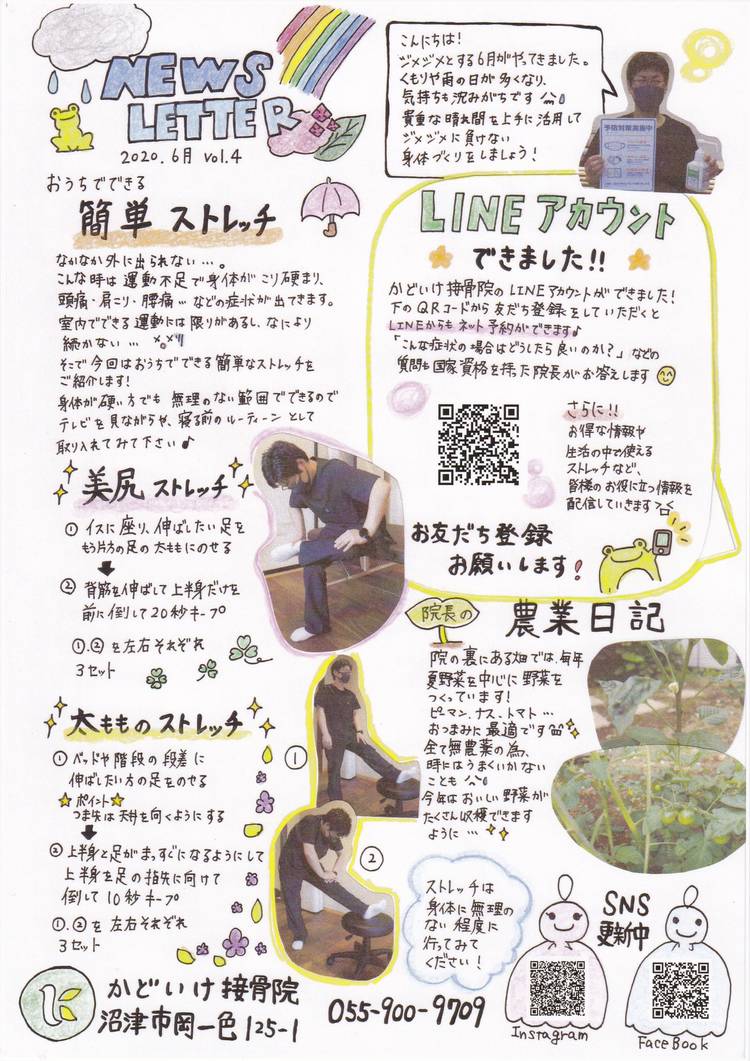 NEWS
LETTER
2020.6月 vol.4
こんにちは!
ジメジメとする6月がやってきました。
くもりや雨の日が多くなり、
気持ちも沈みがちです
貴重な晴れ間を上手に活用して
ジメジメに負けない
身体づくりをしましょう!
予防対策実施中
おうちでできる
簡単 ストレッチ
なかなか外に出られない…。
こんな時は運動不足で身体がこり硬まり、
頭痛・肩こり・腰痛…などの症状が出てきます。
室内でできる運動には限りがあるし、なにより
続かない…
そこで今回はおうちでできる簡単なストレッチを
ご紹介します!
身体が硬い方でも無理のない範囲でできるので
テレビを見ながらや、寝る前のルーティーンとして
取り入れてみて下さい♪
美尻 ストレッチ
① イスに座り、伸ばしたい足を
もう片方の足の太ももにのせる
② 背筋を伸ばして上半身だけを
前に倒して20秒キープ
①.②を左右それぞれ
3セット
太もものストレッチ
① ベッドや階段の段差に
伸ばしたい方の足をのせる
☆ポイント☆
つま先は天井を向くようにする
② 上半身と足がまっすぐになるようにして
上半身を足の指先に向けて
倒して10秒キープ
①.②を左右それぞれ
3セット
①
②
LINE アカウント
できました!!
かどいけ接骨院のLINEアカウントができました!
下のQRコードから友だち登録をしていただくと
LINEからもネット予約ができます♪
「こんな症状の場合はどうしたら良いのか?」などの
質問も国家資格を持った院長がお答えします
さらに!!
お得な情報や
生活の中で使える
ストレッチなど、
皆様のお役に立つ情報を
配信していきます
お友だち登録
お願いします!
院長の
農業日記
院の裏にある畑では、毎年
夏野菜を中心に野菜を
つくっています!
ピーマン、ナス、トマト…
おつまみに最適です
全て無農薬の為、
時にはうまくいかない
ことも
今年はおいしい野菜が
たくさん収穫できます
ように…
ストレッチは
身体に無理の
ない程度に
行ってみて
ください!
SNS
更新中
Instagram
FaceBook
かどいけ接骨院
沼津市岡一色125-1
055-900-9709